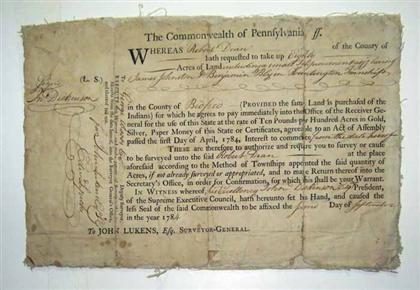 The Commonwealth of Pennsylvania, ſſ.
WHEREAS Robert Dean of the County of
hath requested to take up Eighty
Acres of Land including a small Improvement
James Johnston & Benjamin Huntington Township
in the County of Bedford (PROVIDED the Land is purchased of the
Indians) for which he agrees to pay immediately into the Office of the Receiver General
for the use of this State at the rate of Ten Pounds per Hundred Acres in Gold,
Silver, Paper Money of this State or Certificates, agreeable to an Act of Assembly
passed the first Day of April, 1784, Interest to commence from the
THESE are therefore to authorize and require you to survey or cause
to be surveyed unto the said Robert Dean at the place
aforesaid according to the Method of Townships appointed the said quantity of
Acres, if not already surveyed or appropriated, and to make Return thereof into the
Secretary's Office, in order for Confirmation, for which this shall be your Warrant.
IN WITNESS whereof his Excellency John Dickinson Esq President,
of the Supreme Executive Council, hath hereunto set his Hand, and caused the
less Seal of the said Commonwealth to be affixed the Day of September
in the year 1784
To JOHN LUKENS, Esq. SURVEYOR-GENERAL.
(L. S.)
Jn Dickinson
To George Woods
Deputy Surveyor
John Lukens